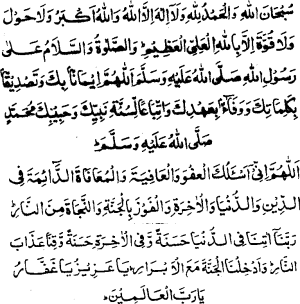 سُبْحَانَ اللهِ وَالْحَمْدُ لِلّٰهِ وَلَا اِلٰهَ اِلَّا اللهُ وَاللهُ اَكْبَرُ وَلَا حَوْلَ
وَلَا قُوَّةَ اِلَّا بِاللهِ الْعَلِيِّ الْعَظِيْمِ وَالصَّلٰوةُ وَالسَّلَامُ عَلٰى
رَسُوْلِ اللهِ صَلَّى اللهُ عَلَيْهِ وَسَلَّمَ اَللّٰهُمَّ اِيْمَانًا بِكَ وَتَصْدِيْقًا
بِكَلِمَاتِكَ وَوَفَاءً بِعَهْدِكَ وَاتِّبَاعًا لِّسُنَّةِ نَبِيِّكَ وَحَبِيْبِكَ مُحَمَّدٍ
صَلَّى اللهُ عَلَيْهِ وَسَلَّمَ ط
اَللّٰهُمَّ اِنِّيْ اَسْئَلُكَ الْعَفْوَ وَالْعَافِيَةَ وَالْمُعَافَاةَ الدَّآئِمَةَ فِي
الدِّيْنِ وَالدُّنْيَا وَالْاٰخِرَةِ وَالْفَوْزَ بِالْجَنَّةِ وَالنَّجَاةَ مِنَ النَّارِ ط
رَبَّنَا اٰتِنَا فِي الدُّنْيَا حَسَنَةً وَّفِي الْاٰخِرَةِ حَسَنَةً وَّقِنَا عَذَابَ
النَّارِ ط وَاَدْخِلْنَا الْجَنَّةَ مَعَ الْاَبْرَارِ ط يَا عَزِيْزُ يَا غَفَّارُ
يَا رَبَّ الْعَالَمِيْنَ ط